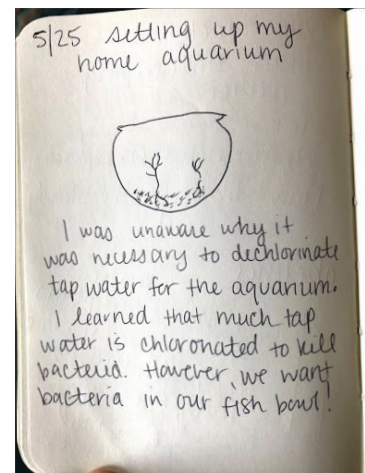 5/25 setting up my
home aquarium
I was unaware why it
was necessary to dechlorinate
tap water for the aquarium.
I learned that much tap
water is chloronated to kill
bacteria. However, we want
bacteria in our fish bowl!